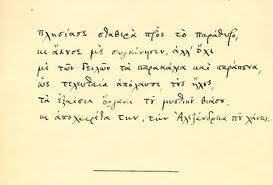 πλησίασε σταθερά πρὸς τὸ παράθυρο,
κι ἄκουσε μὲ συγκίνησιν, ἀλλ' ὄχι
μὲ τῶν δειλῶν τὰ παρακάλια καὶ παράπονα,
ὡς τελευταία ἀπόλαυσι τοὺς ἤχους,
τὰ ἐξαίσια ὄργανα τοῦ μυστικοῦ θιάσου,
κι ἀποχαιρέτα την, τὴν Ἀλεξάνδρεια ποὺ χάνεις.